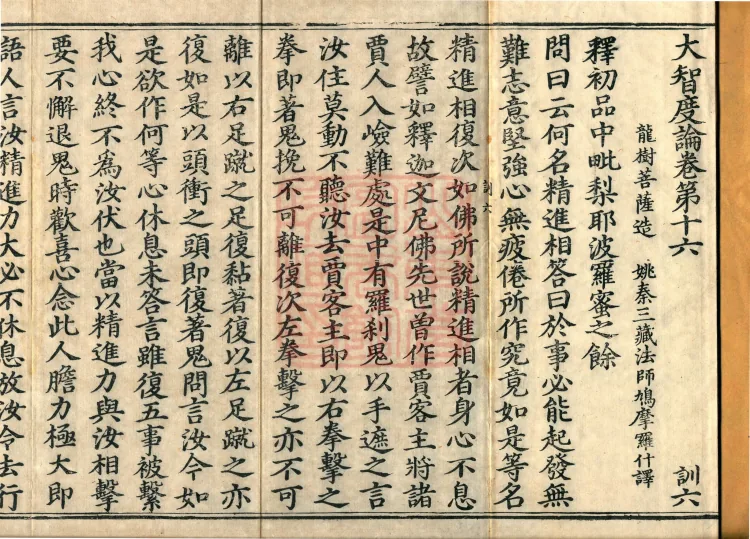 大智度論卷第十六 訓六
龍樹菩薩造 姚秦三藏法師鳩摩羅什譯
釋初品中毗梨耶波羅蜜之餘
問曰云何名精進相荅曰於事必能起發無
難志意堅強心無疲倦所作究竟如是等名
訓六
精進相復次如佛所說精進相者身心不息
故譬如釋迦文尼佛先世曾作賈客主將諸
賈人入嶮難處是中有羅刹鬼以手遮之言
汝住莫動不聽汝去賈客主即以右拳擊之
拳即著鬼挽不可離復次左拳擊之亦不可
離以右足蹴之足復黏著復以左足蹴之亦
復如是以頭衝之頭即復著鬼問言汝今如
是欲作何等心休息未答言雖復五事被繫
我心終不為汝伏也當以精進力與汝相擊
要不懈退鬼時歡喜心念此人膽力極大即
語人言汝精進力大必不休息放汝令去行